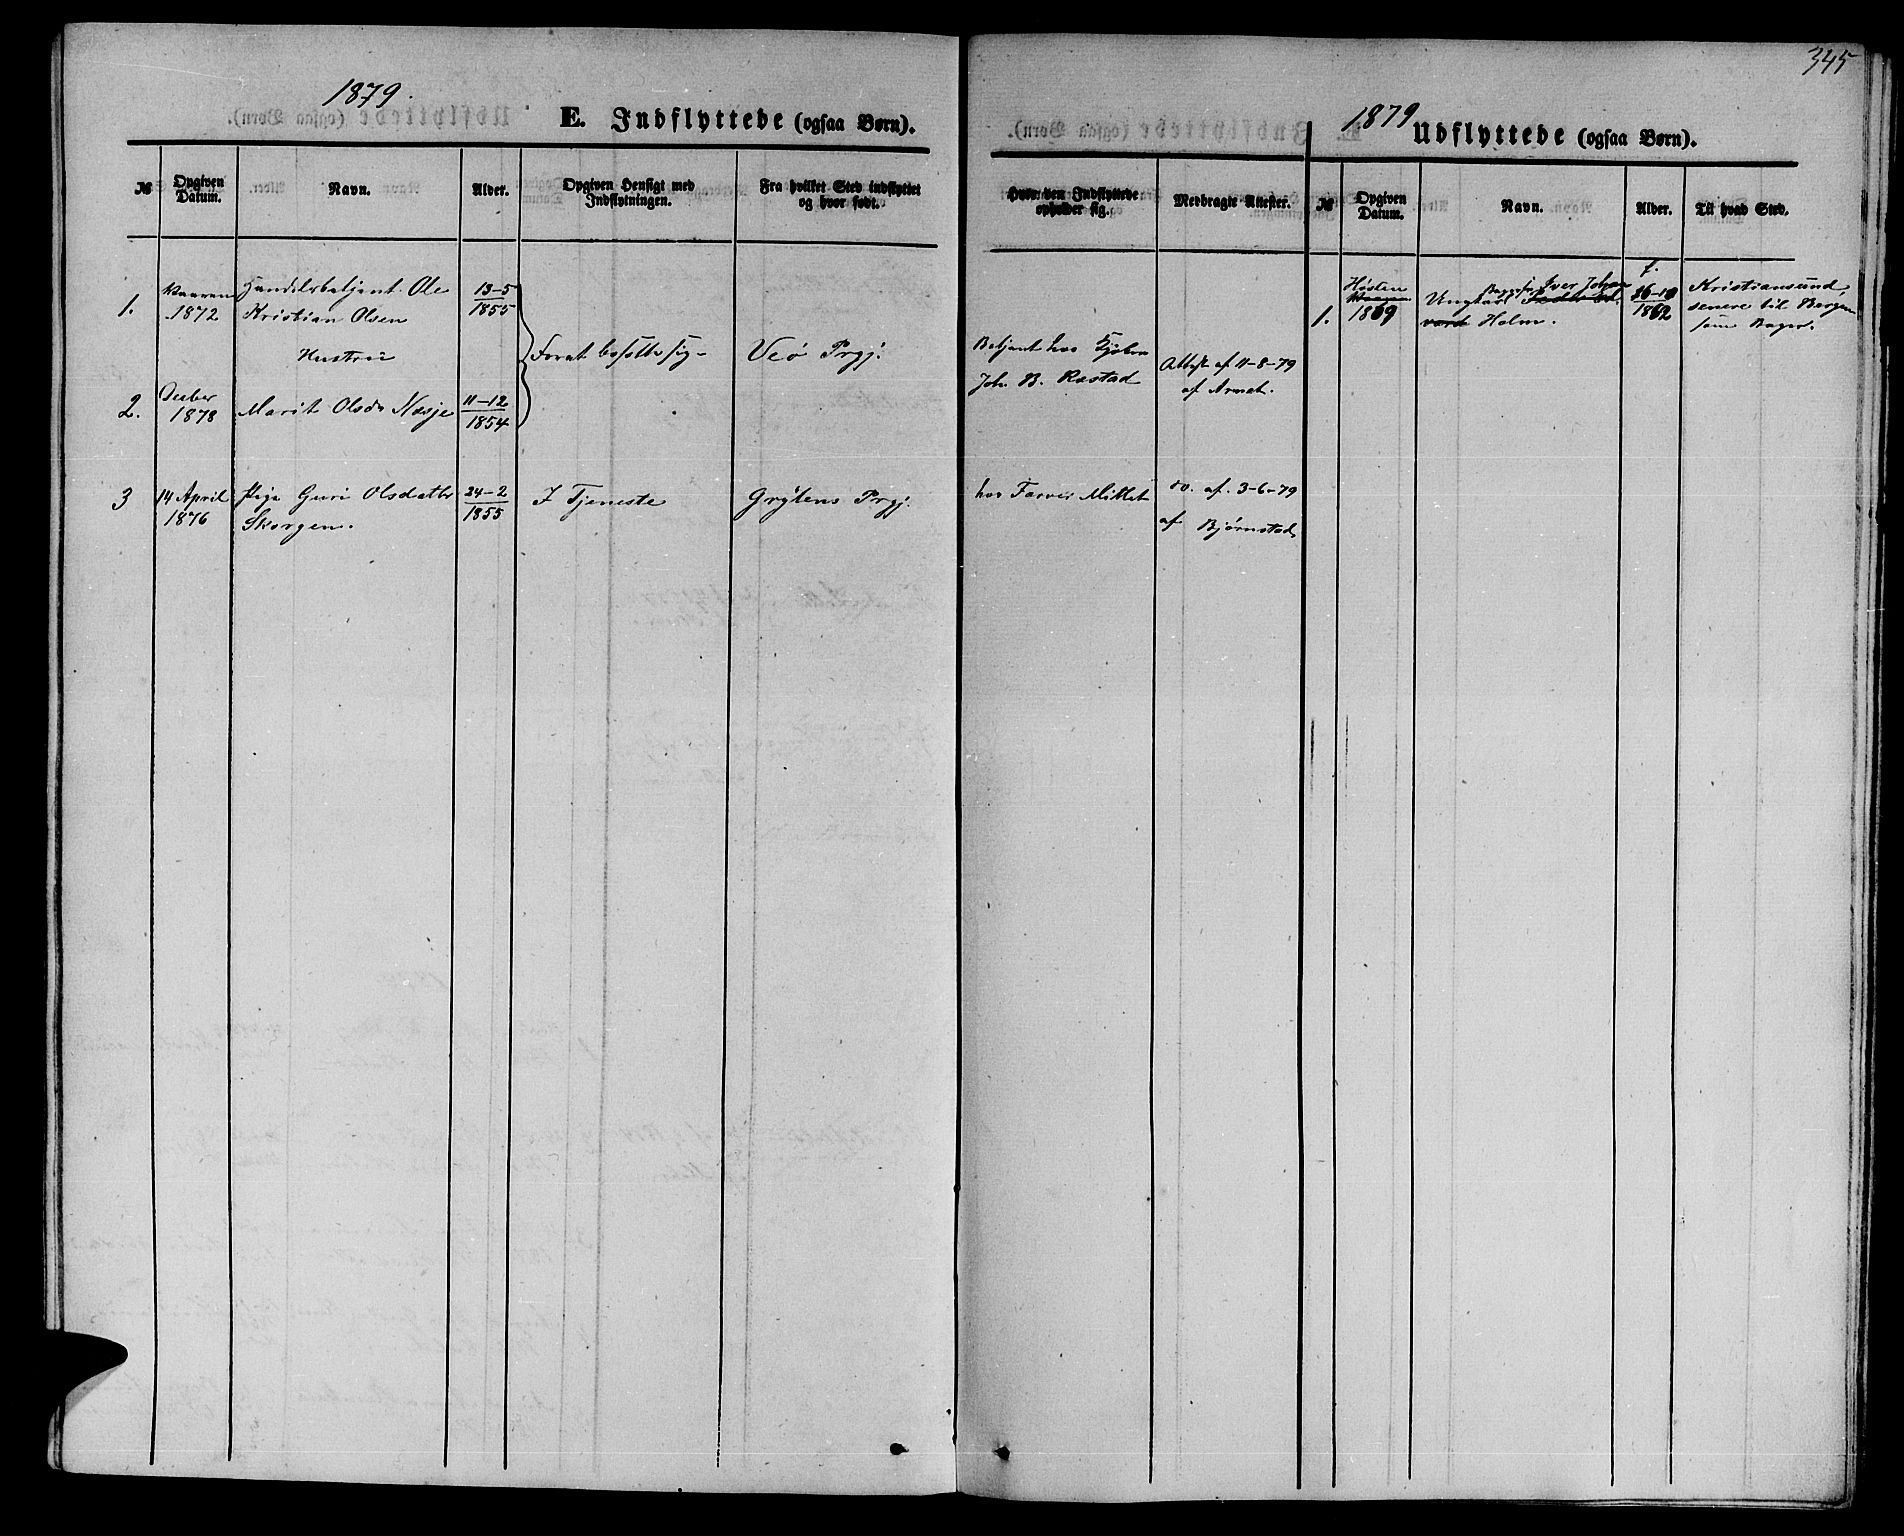 345
1879.
E. Indflyttede (ogsaa Børn).
№ Opgiven Datum. Navn. Alder. Opgiven Hensigt med Indflytningen. Fra hvilket Sted indflyttet og hvor født.
1. Vaaren 1872 Handelsbetjent Ole Kristian Olsen 13-5 1855
Hustru
Forat bosætte sig Veø Prgj.
2. Decber 1878 Marit Olsdr Næsje 11-12 1854
3 14 April 1876 Pige Guri Olsdatter Skorgen. 24-2 1855 I Tjeneste Grytens Prgj.
Hvor den Indflyttede opholder sig. Medbragte Attester.
Betjent hos Kjøbm Joh. B. Rostad Attest af 11-8-79 af
hos Farver Mittet do. af. 3-6-79 af Bjørnstad
1879
Udflyttede (ogsaa Børn).
№ Opgiven Datum. Navn. Alder. Til hvad Sted.
1. Høsten 1869 Ungkarl Iver Johan Holm. f. 26-10 1862 Kristiansund, senere til Bergen som Bager.